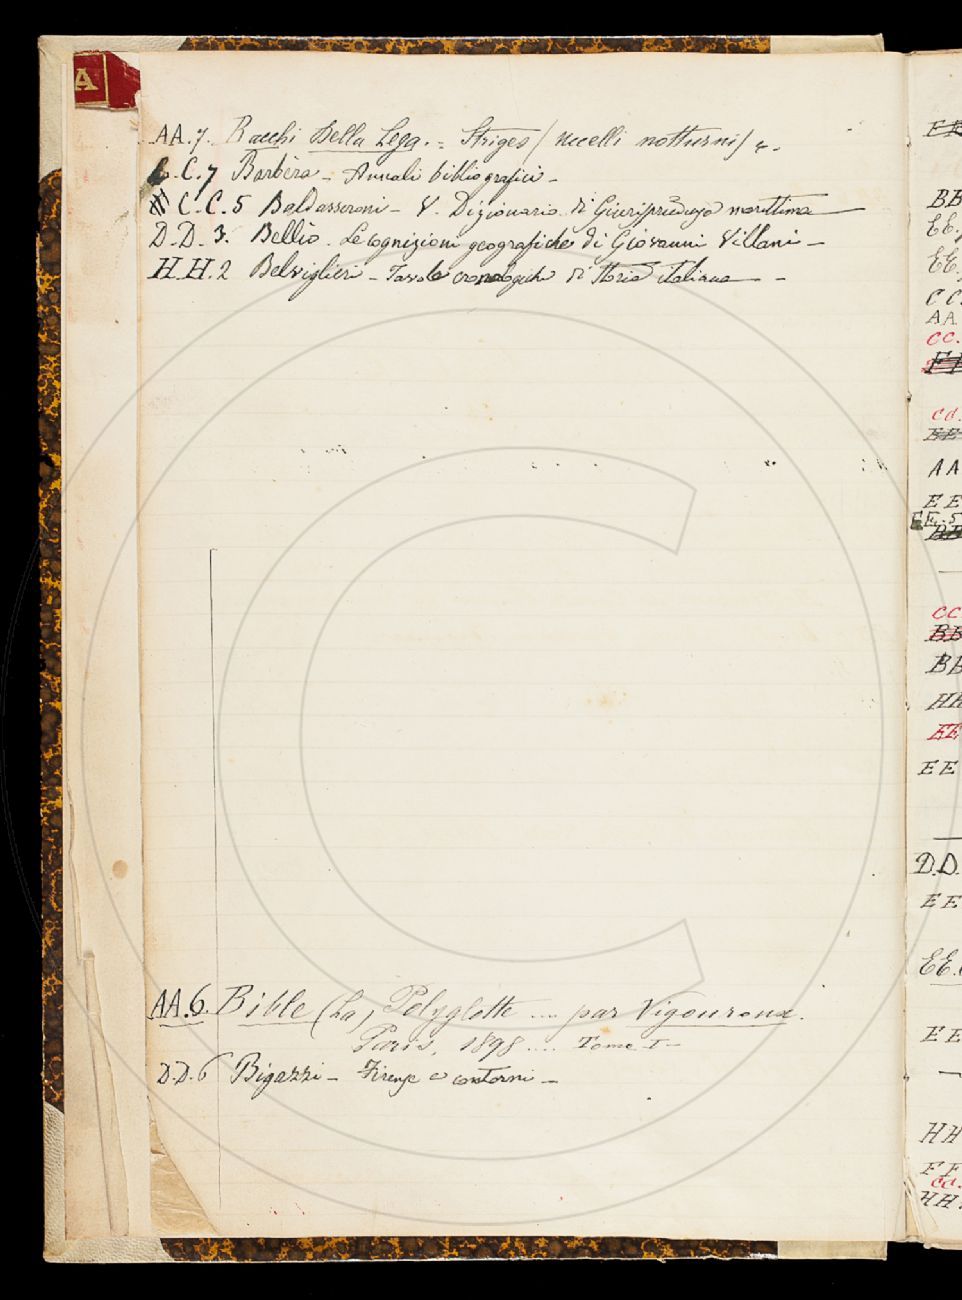 A
AA.7. Bacchi Della Lega. = Striges / Uccelli notturni /
C.C.7 Barbèra - Annali bibliografici -
C.C.5 Baldasseroni - V. Dizionario di Giurisprudenza marittima
D.D.3. Bellio. Le cognizioni geografiche di Giovanni Villani -
H.H.2 Belviglieri - Tavole cronologiche di Storia italiana - -
AA.6. Bible (La) Polyglotte .... par Vigouroux.
Paris, 1898 .... Tome I -
D.D.6 Bigazzi - Firenze e contorni -
BB
EE.
EE.
CC.
AA
CC.
AA
EE
EE.5
CC
BB
HH
EE
EE
D.D.
EE
EE.
EE
HH
FF
HH.